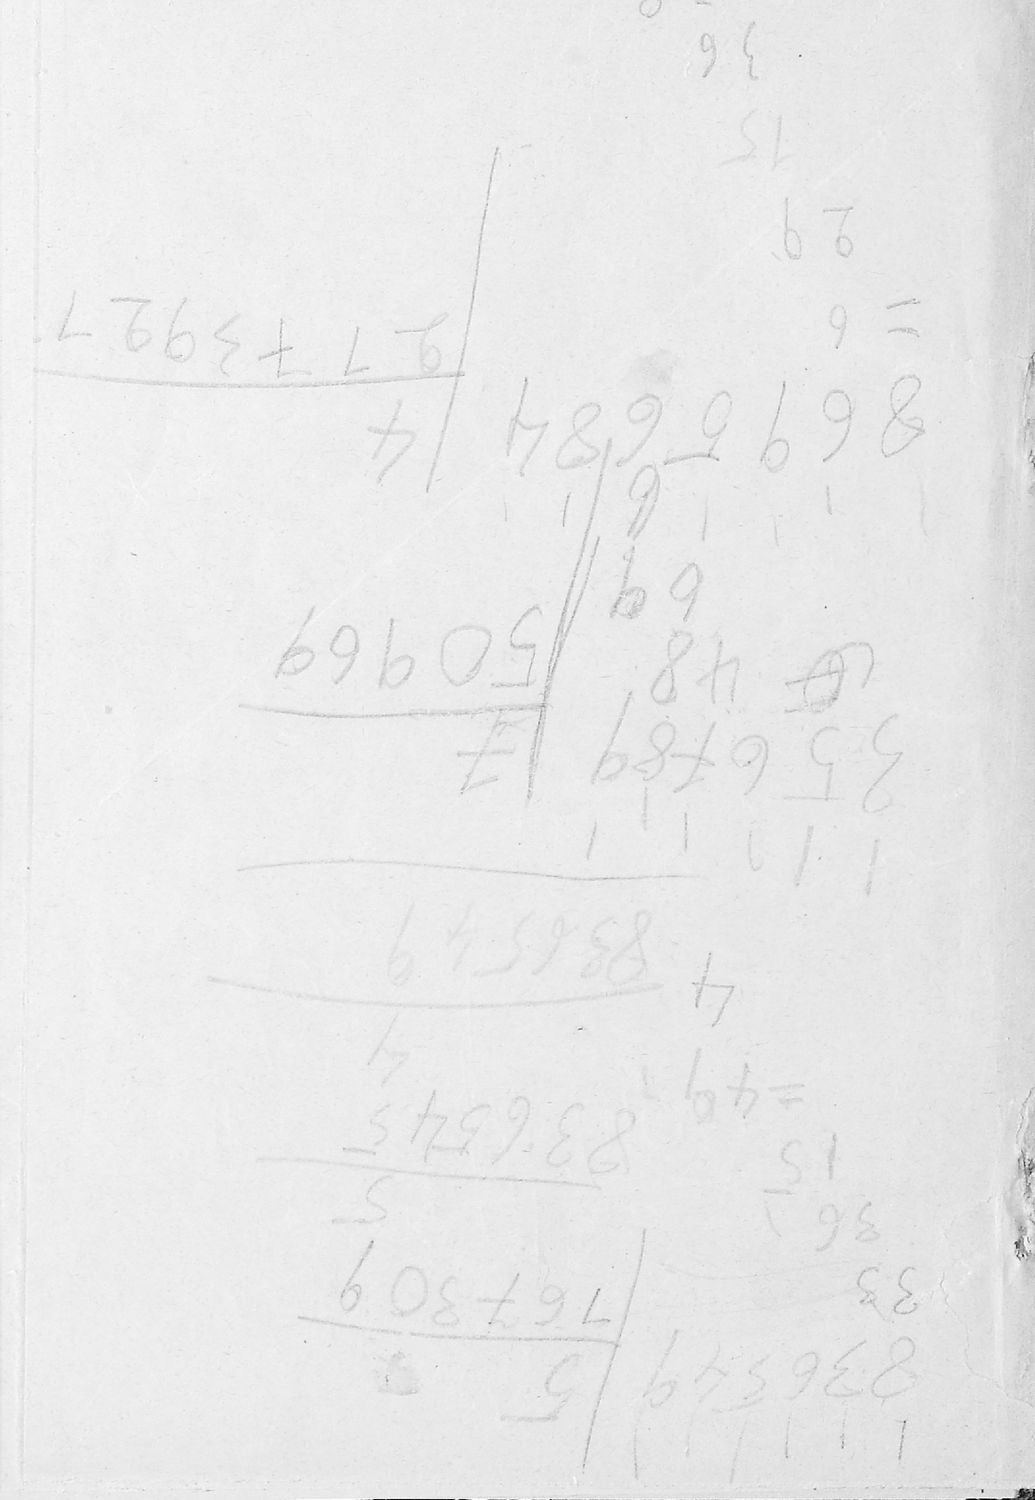 836549 5
33 167309
36 5
15 836545
=49 4
4 836549
356789 7
48 50969
69
6
8695684 4
=6 2173921
29
15
36